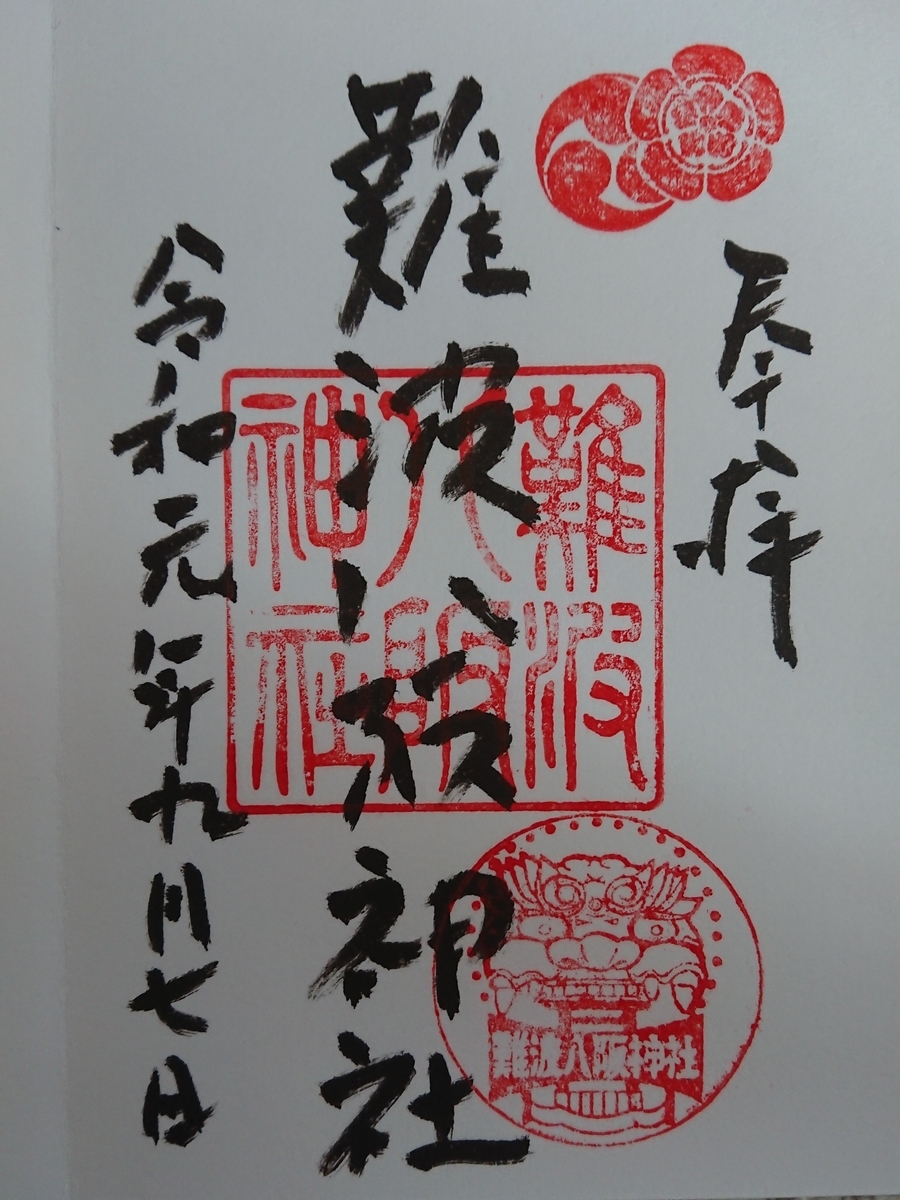 奉拝
難波八阪神社
難波
八阪
神社
難波八阪神社
令和元年九月七日